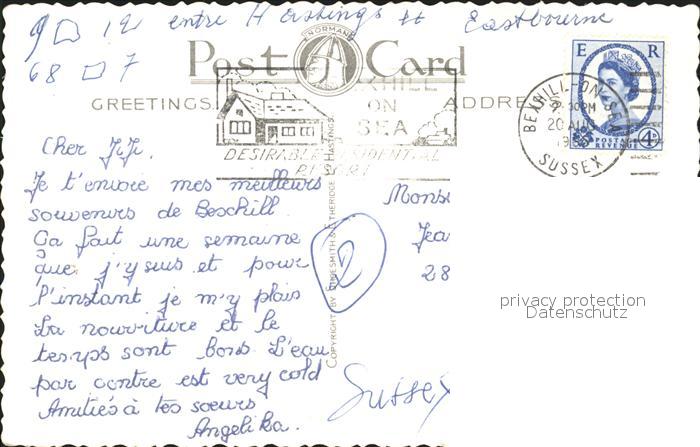 9 □ 12 entre Hastings et Eastbourne
68 □ 7
Post Card
NORMAN
GREETINGS
ADDRE
BEXHILL
ON
SEA
DESIRABLE RESIDENTIAL
RESORT
E R
POSTAGE
REVENUE
4D
BEXHILL-ON-SEA
30 PM
20 AUG
SUSSEX
Cher JiJi.
Je t'envoie mes meilleurs
souvenirs de Bexchill.
Ca fait une semaine
que j'y suis et pour
l'instant je m'y plais
La nourriture et le
temps sont bons. L'eau
par contre est very cold
Amitiés à tes soeurs
Angelika.
COPYRIGHT BY SHOESMITH & ETHERIDGE HASTINGS
2
Mons
Jea
28
Sussex
privacy protection
Datenschutz